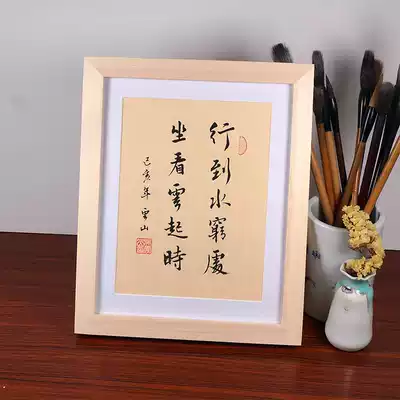 行到水窮處
坐看雲起時
己亥年 雲山